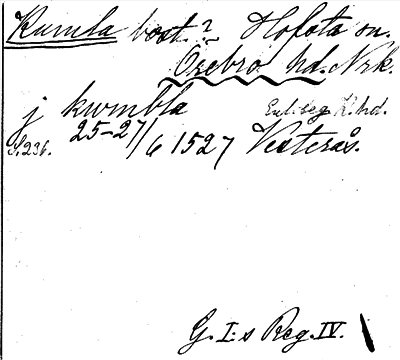 Kumla bost. ? Hofsta sn.
Örebro hd. Nrk.
j kwmbla Enl. beg. K. hd.
S. 236. 25-27/6 1527 Västerås.
G. I:s Reg. IV.